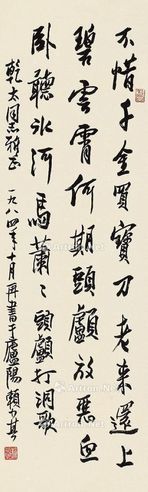 不惜千金買寶刀老来還上
碧雲霄何期頭顱放惡血
卧聽冰河馬蕭〻頭顱打洞歌
乾太同志雅正
一九八四年十月再書于廬陽賴少其